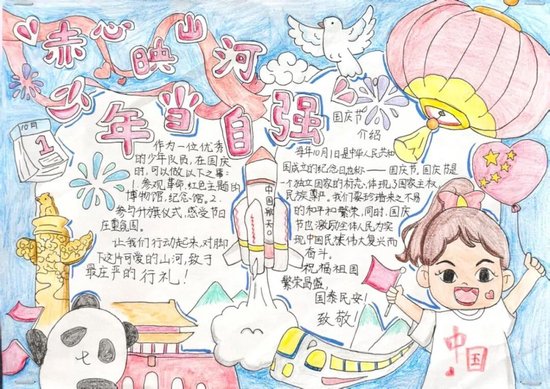 赤心映山河
少年当自强
10月
1
作为一位优秀
的少年队员,在国庆
时,可以做以下之事:
参观革命,红色主题的
博物馆,纪念馆。2.
参与升旗仪式,感受节日
让我们行动起来,对脚
下这片可爱的山河,致于
最庄严的行礼!
中国航天
国庆节
介绍
每年10月1日是中华人民共和
国成立的纪念日
国庆节,国庆节是
一个独立国家的标志,体现了国家主权
民族尊严,我们要珍惜来之不易
的和平和繁荣,同时,国庆
节也激励全体人民为实
现中国民族伟大复兴而
奋斗。
祝福祖国
繁荣昌盛,
国泰民安!
致敬!
中国